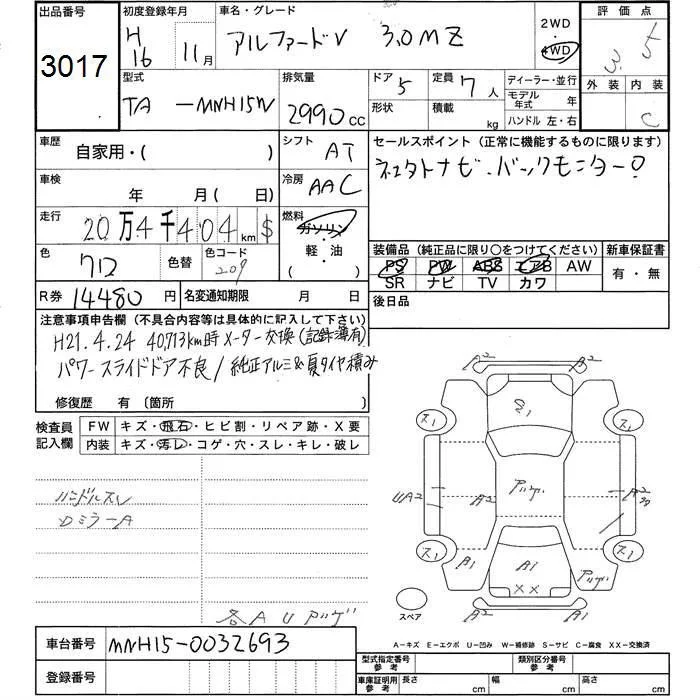 出品番号
3017
初度登録年月
H16 11月
車名・グレード
アルファードV 3.0MZ
2WD
4WD
評価点
3.5
外装 内装
C
型式
TA-MNH15W
排気量
2990cc
ドア 5
形状
定員 7人
積載 kg
ディーラー・並行
モデル年式 年
ハンドル 左・右
車歴
自家用・( )
シフト
AT
車検
年 月( 日)
冷房
AAC
走行
20万4千404km $
燃料
ガソリン・軽・油
( )
色
クロ
色替
色コード
209
R券 14480円
名変通知期限 月 日
セールスポイント(正常に機能するものに限ります)
ナビ.バックモニター
装備品(純正品に限り○をつけてください)
新車保証書
PS PW ABS エアB AW
SR ナビ TV カワ
有・無
後日品
注意事項申告欄(不具合内容等は具体的に記入して下さい)
H21.4.24 40,713km時メーター交換(記録簿有)
パワースライドドア不良/純正アルミ&夏タイヤ積み
修復歴 有〔箇所 〕
検査員
記入欄
FW キズ・飛石・ヒビ割・リペア跡・X要
内装 キズ・汚レ・コゲ・穴・スレ・キレ・破レ
ハンドルスレ
DミラーA
各AUアツゲ
A2 A2
ス1 ス1
UA2 A2 アツゲ A2
ス1 ス1
B1 A1 アツゲ
XX
スペア
A2 A1
車台番号 MNH15-0032693
登録番号
A-キズ E-エクボ U-凹み W-補修跡 S-サビ C-腐食 XX-交換済
型式指定番号
参考
類別区分番号
参考
車庫証明用
参考
長さ cm
幅 cm
高さ cm